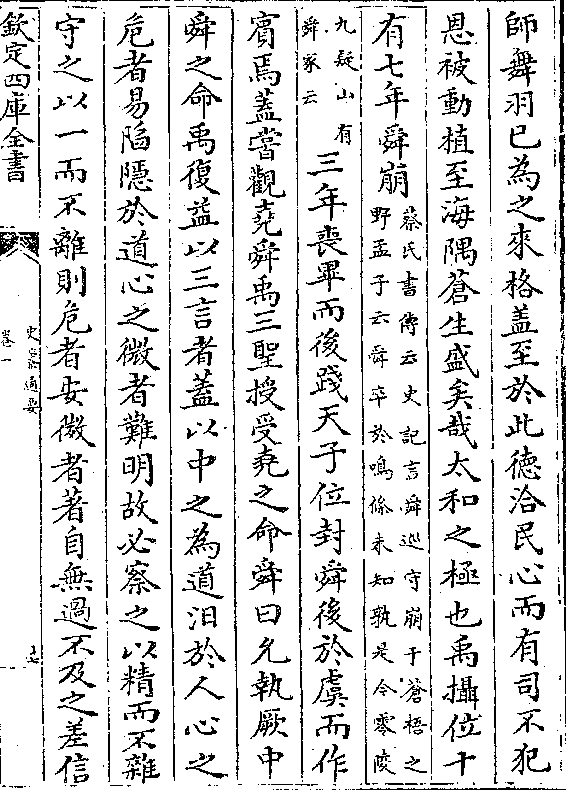 師舞羽已為之來格盖至於此徳洽民心而有司不犯
恩被動植至海隅蒼生盛矣哉太和之極也禹攝位十
有七年舜崩
蔡氏書傳云史記言舜巡守崩于蒼梧之
野孟子云舜卒於鳴條未知孰是今零陵
九疑山有
舜冢云
三年喪畢而後踐天子位封舜後於虞而作
賓焉蓋嘗觀堯舜禹三聖授受堯之命舜曰允執厥中
舜之命禹復益以三言者蓋以中之為道汩於人心之
危者易陷隱於道心之微者難明故必察之以精而不雜
守之以一而不離則危者安微者著自無過不及之差信
欽定四庫全書
史纂通要
卷一